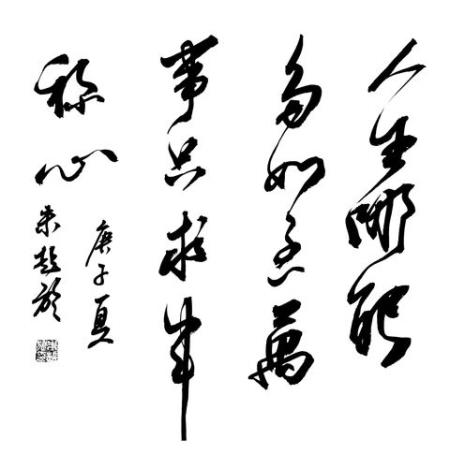 人生哪能
多如意萬
事只求半
称心
庚子夏